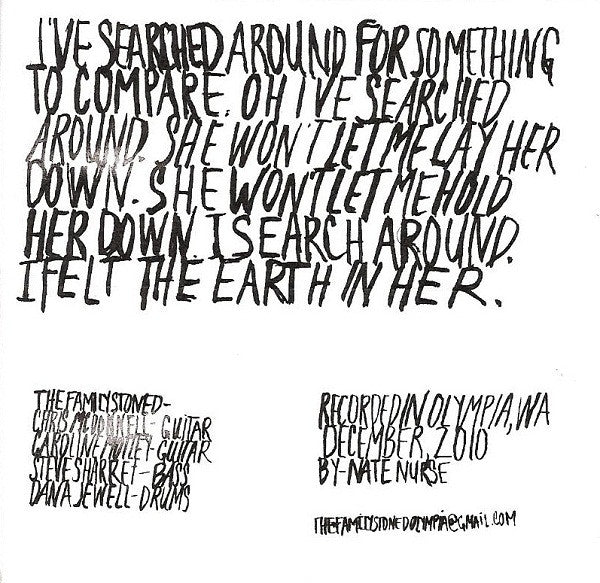 I'VE SEARCHED AROUND FOR SOMETHING
TO COMPARE. OH I'VE SEARCHED
AROUND. SHE WON'T LET ME LAY HER
DOWN. SHE WON'T LET ME HOLD
HER DOWN. I SEARCH AROUND.
I FELT THE EARTH IN HER.
THE FAMILY STONED-
CHRIS MCDONNELL-GUITAR
CAROLINE-GUITAR
STEVE SHARRET-BASS
DANA JEWELL-DRUMS
RECORDED IN OLYMPIA, WA
DECEMBER, 2010
BY-NATE NURSE
THEFAMILYSTONEDOLYMPIA@GMAIL.COM